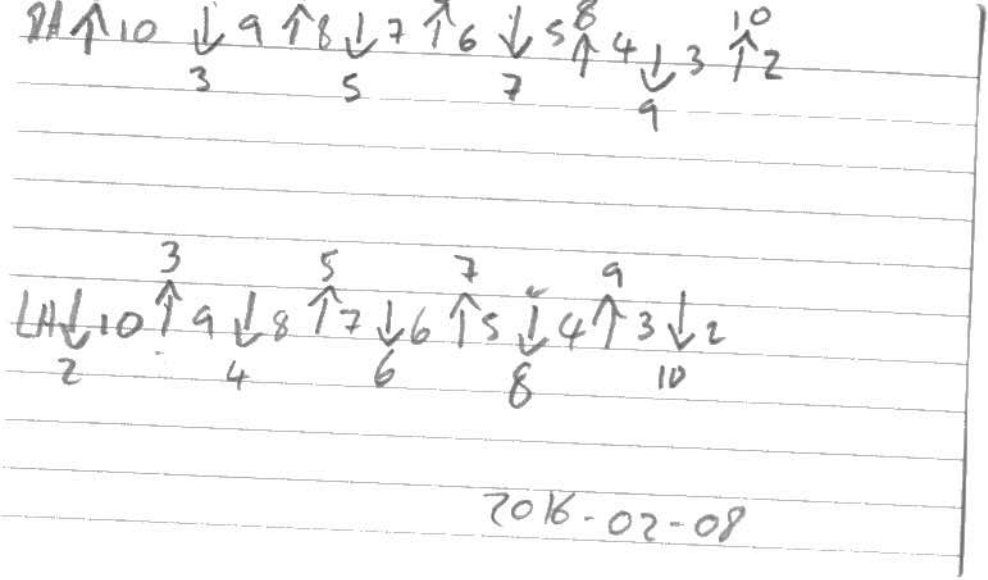 10
8
RH ↑ 10 ↓ 9 ↑ 8 ↓ 7 ↑ 6 ↓ 5 ↑ 4 ↓ 3 ↑ 2
3 5 7 9
3 5 7 9
LH ↓ 10 ↑ 9 ↓ 8 ↑ 7 ↓ 6 ↑ 5 ↓ 4 ↑ 3 ↓ 2
2 4 6 8 10
2016-02-08